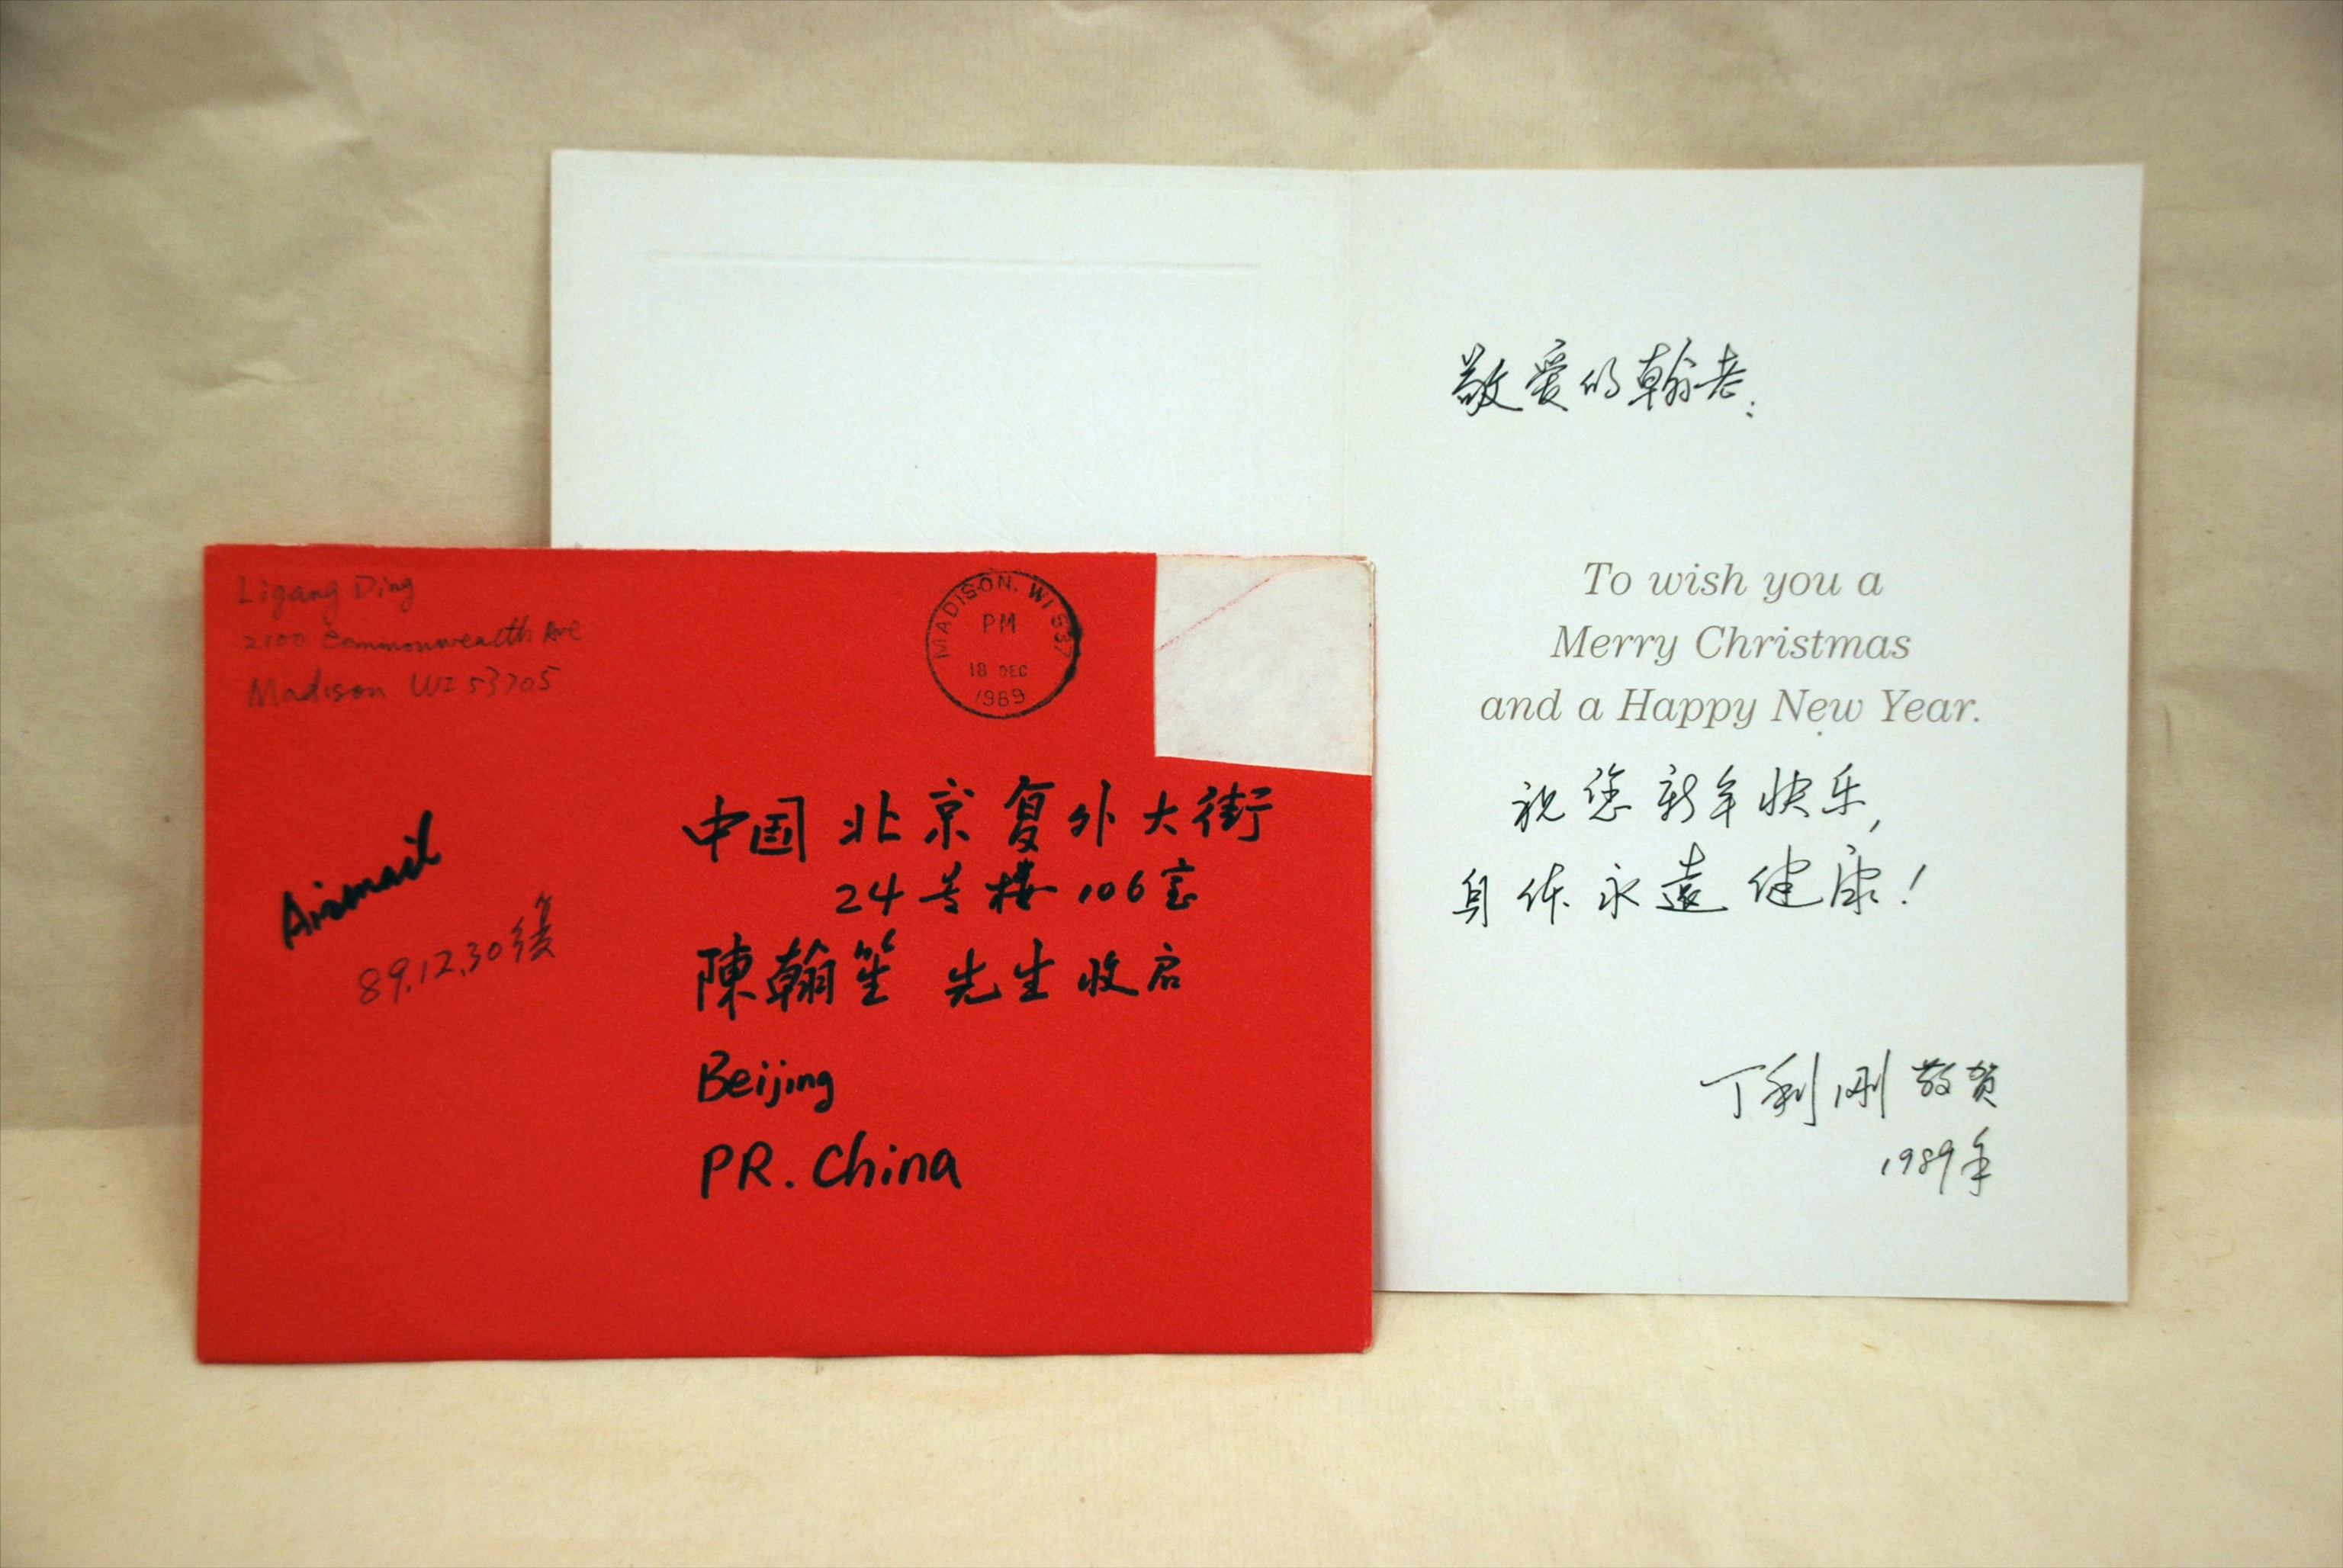 Ligang Ding
2100 Commonwealth Ave
Madison WI 53705
MADISON, WI 537
PM
18 DEC
1989
Airmail
89.12.30復
中国 北京 复外大街
24号楼 106室
陳翰笙 先生 收启
Beijing
PR. China
敬爱的翰老:
To wish you a
Merry Christmas
and a Happy New Year.
祝您新年快乐,
身体永遠健康!
丁利刚 敬贺
1989年